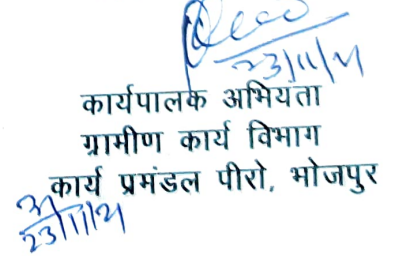 23/11/21
कार्यपालक अभियंता
ग्रामीण कार्य विभाग
कार्य प्रमंडल पीरो, भोजपुर
23/11/21